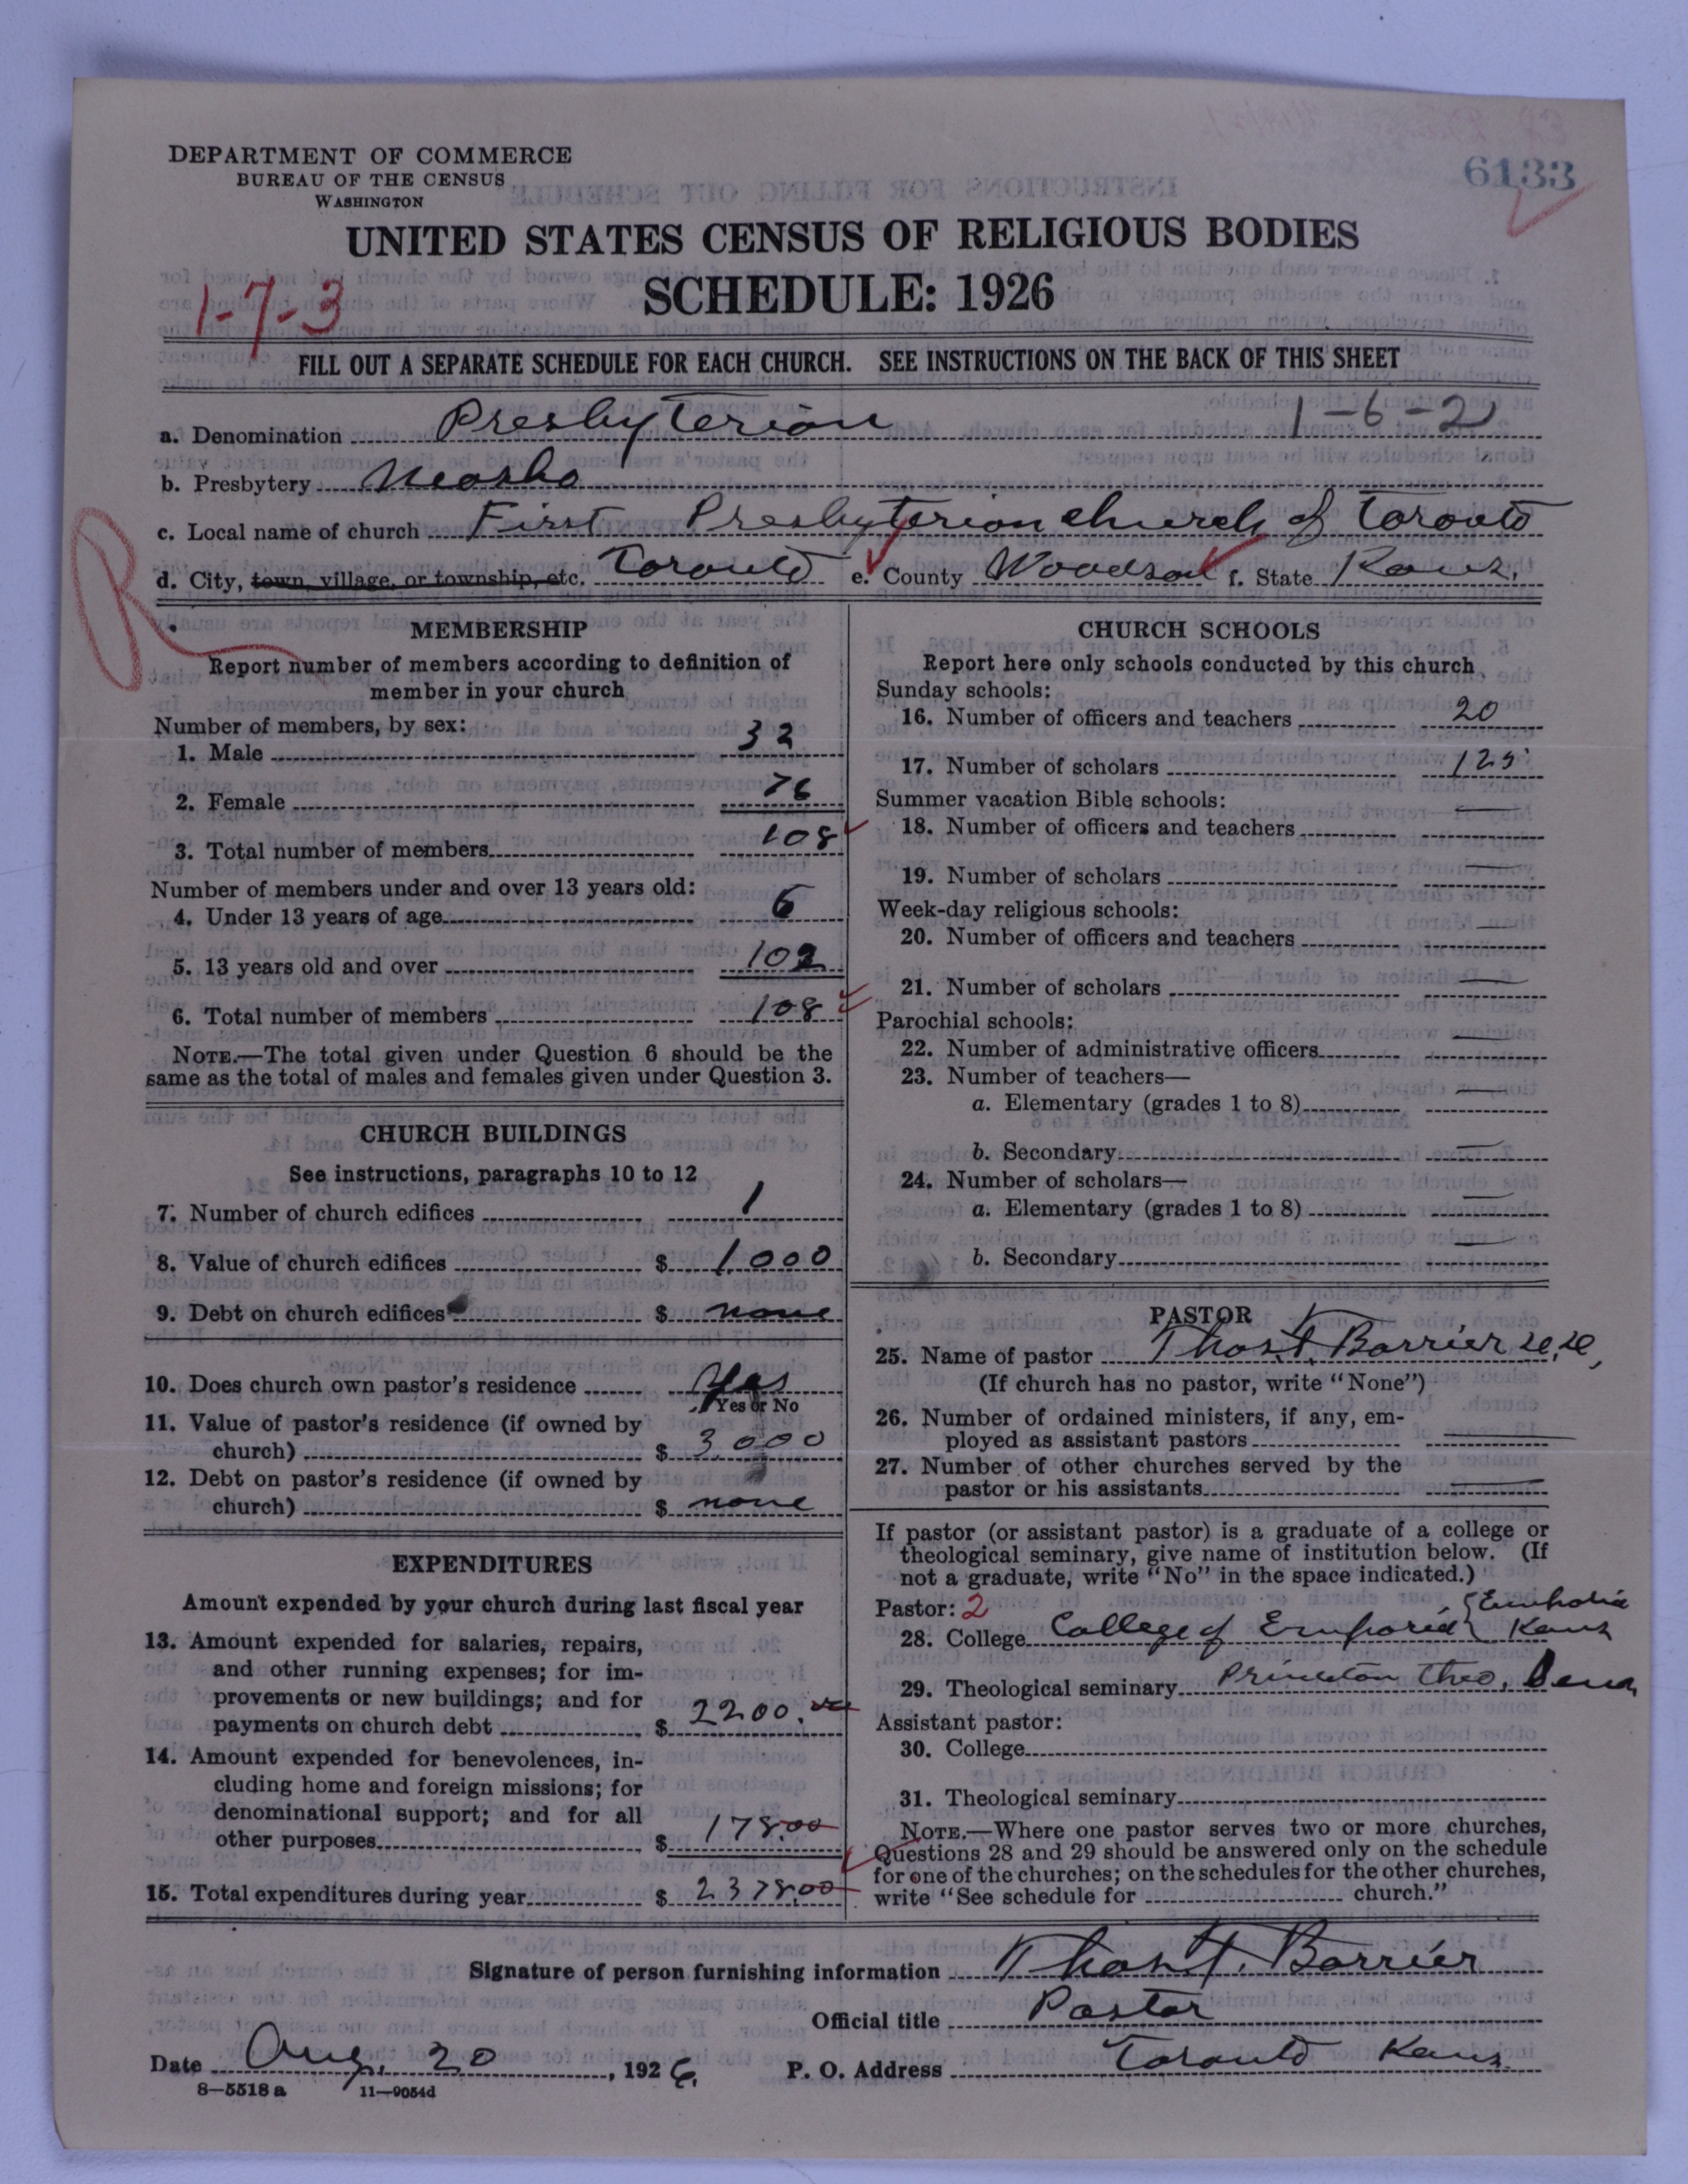 6133
DEPARTMENT OF COMMERCE
BUREAU OF THE CENSUS
WASHINGTON
UNITED STATES CENSUS OF RELIGIOUS BODIES
SCHEDULE: 1926
1-7-3
FILL OUT A SEPARATE SCHEDULE FOR EACH CHURCH. SEE INSTRUCTIONS ON THE BACK OF THIS SHEET
a. Denomination Presbyterian 1-6-2
b. Presbytery Neosho
c. Local name of church First Presbyterian church of Toronto
R
d. City, town, village, or township, etc. Toronto e. County Woodson f. State Kans.
MEMBERSHIP
Report number of members according to definition of
member in your church
Number of members, by sex:
1. Male 32
2. Female 76
3. Total number of members 108
Number of members under and over 13 years old:
4. Under 13 years of age 6
5. 13 years old and over 102
6. Total number of members 108
NOTE.—The total given under Question 6 should be the
same as the total of males and females given under Question 3.
CHURCH BUILDINGS
See instructions, paragraphs 10 to 12
7. Number of church edifices 1
8. Value of church edifices $ 1000
9. Debt on church edifices $ none
10. Does church own pastor's residence Yes
Yes or No
11. Value of pastor's residence (if owned by
church) $ 3000
12. Debt on pastor's residence (if owned by
church) $ none
EXPENDITURES
Amount expended by your church during last fiscal year
13. Amount expended for salaries, repairs,
and other running expenses; for im-
provements or new buildings; and for
payments on church debt $ 2200.00
14. Amount expended for benevolences, in-
cluding home and foreign missions; for
denominational support; and for all
other purposes $ 178.00
15. Total expenditures during year $ 2378.00
CHURCH SCHOOLS
Report here only schools conducted by this church
Sunday schools:
16. Number of officers and teachers 20
17. Number of scholars 125
Summer vacation Bible schools:
18. Number of officers and teachers —
19. Number of scholars —
Week-day religious schools:
20. Number of officers and teachers —
21. Number of scholars —
Parochial schools:
22. Number of administrative officers —
23. Number of teachers—
a. Elementary (grades 1 to 8) —
b. Secondary —
24. Number of scholars—
a. Elementary (grades 1 to 8) —
b. Secondary —
PASTOR
25. Name of pastor Thos. T. Barrier
(If church has no pastor, write "None")
26. Number of ordained ministers, if any, em-
ployed as assistant pastors —
27. Number of other churches served by the
pastor or his assistants —
If pastor (or assistant pastor) is a graduate of a college or
theological seminary, give name of institution below. (If
not a graduate, write "No" in the space indicated.)
Pastor: 2
28. College College of Emporia { Emporia Kans
29. Theological seminary Princeton Theo. Sem
Assistant pastor:
30. College
31. Theological seminary
NOTE.—Where one pastor serves two or more churches,
Questions 28 and 29 should be answered only on the schedule
for one of the churches; on the schedules for the other churches,
write "See schedule for church."
Signature of person furnishing information Thos. T. Barrier
Official title Pastor
Date Aug. 20, 1926. P. O. Address Toronto Kans.
8—5518 a 11—9054d